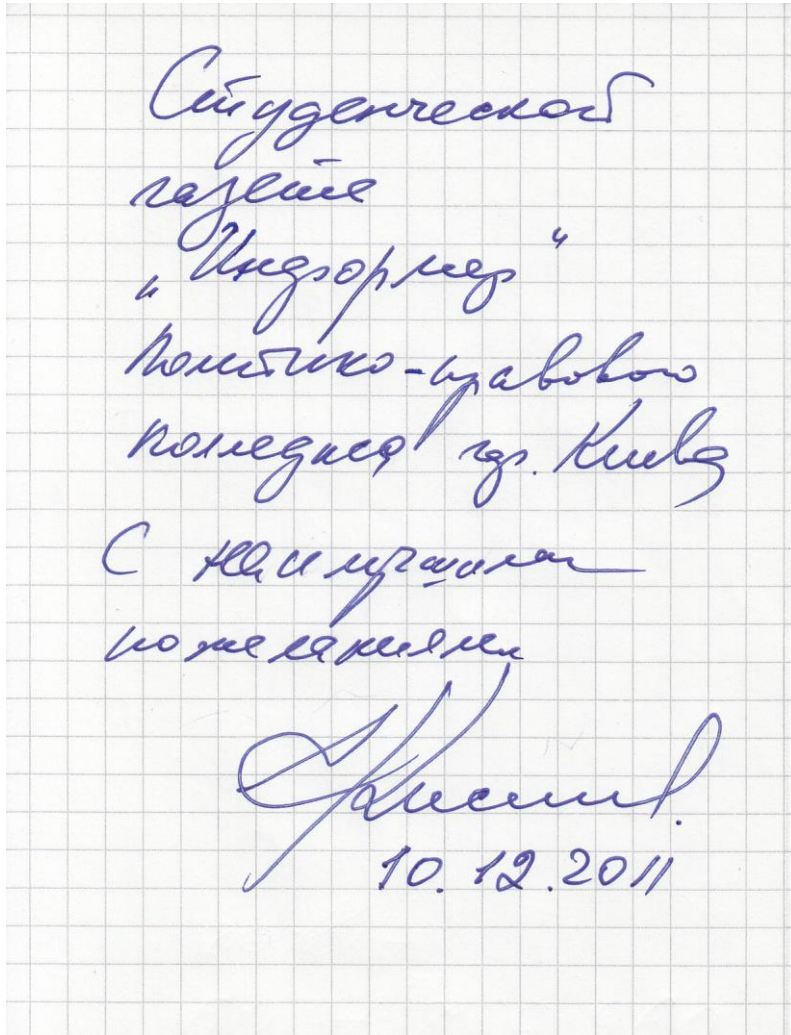 Студенческой
газете
„Информер“
Политико-правового
колледжа гор. Киева
С наилучшими
пожеланиями
10.12.2011